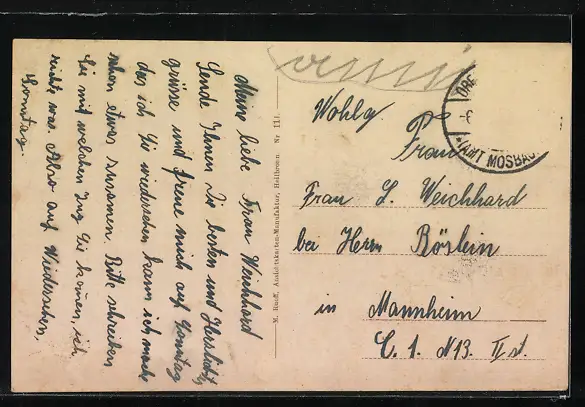 Meine liebe Frau Weichhard
Sende Ihnen Die besten und Herzlichst
grüsse und freue mich auf Sonntag
das ich Sie wiedersehen kann ich mache
schon etwas zusamen. Bitte schreiben
Sie mit welchen Zug Sie komen, ich
nichts war. Also auf Wiedersehen,
Sonntag.
M. Rueff, Ansichtskarten-Manufaktur, Heilbronn Nr 111.
AMT MOSBACH
Wohlg.
Frau
Frau L. Weichhard
bei Herrn Röslein
in Mannheim
C. 1. N13. II st.